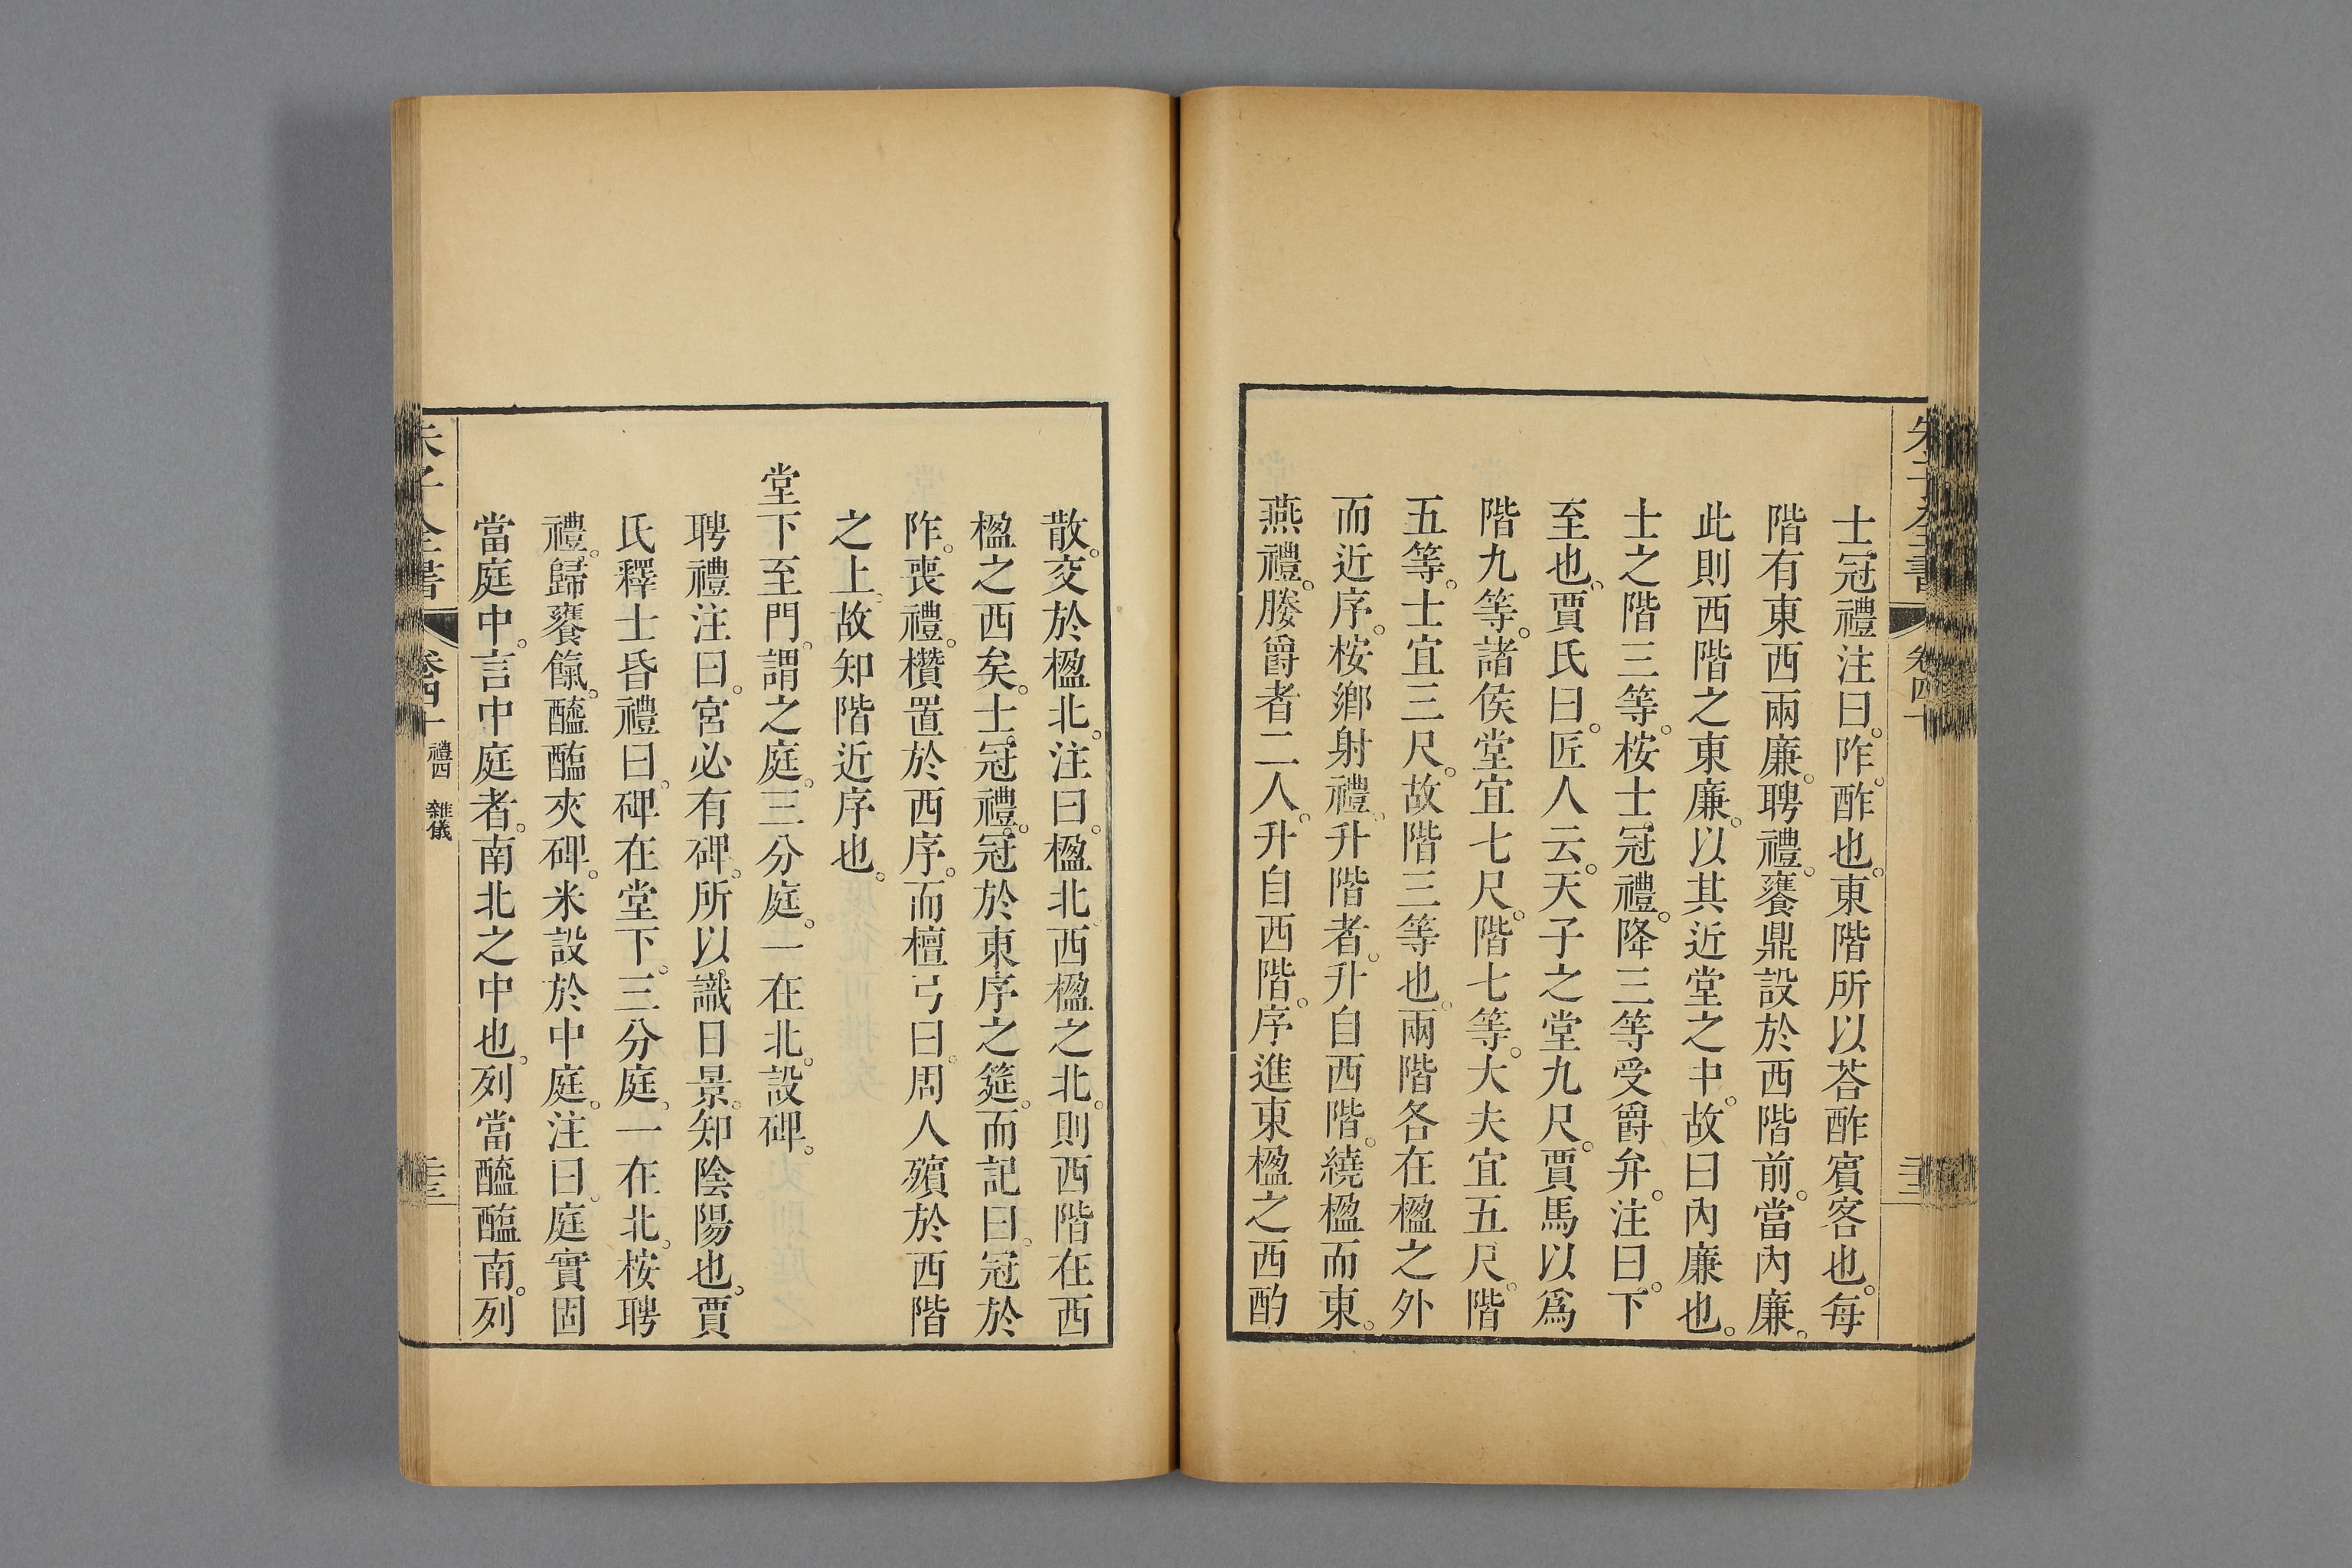 士冠禮注曰。阼。酢也。東階所以荅酢賓客也。每
階有東西兩廉。聘禮。饔鼎設於西階前。當內廉。
此則西階之東廉。以其近堂之中。故曰內廉也。
士之階三等。桉士冠禮。降三等受爵弁。注曰。下
至也。賈氏曰。匠人云。天子之堂九尺。賈馬以爲
階九等。諸侯堂宜七尺。階七等。大夫宜五尺。階
五等。士宜三尺。故階三等也。兩階各在楹之外
而近序。桉鄉射禮。升階者。升自西階。繞楹而東。
燕禮。媵爵者二人。升自西階。序進東楹之西酌
散。交於楹北。注曰。楹北。西楹之北。則西階在西
楹之西矣。士冠禮。冠於東序之筵。而記曰。冠於
阼。喪禮。欑置於西序。而檀弓曰。周人殯於西階
之上。故知階近序也。
堂下至門。謂之庭。三分庭。一在北。設碑。
聘禮注曰。宮必有碑。所以識日景。知陰陽也。賈
氏釋士昏禮曰。碑在堂下。三分庭。一在北。桉聘
禮。歸饔餼。醯醢夾碑。米設於中庭。注曰。庭實固
當庭中。言中庭者。南北之中也。列當醯醢南。列
朱子全書
卷四十
禮四 雜儀